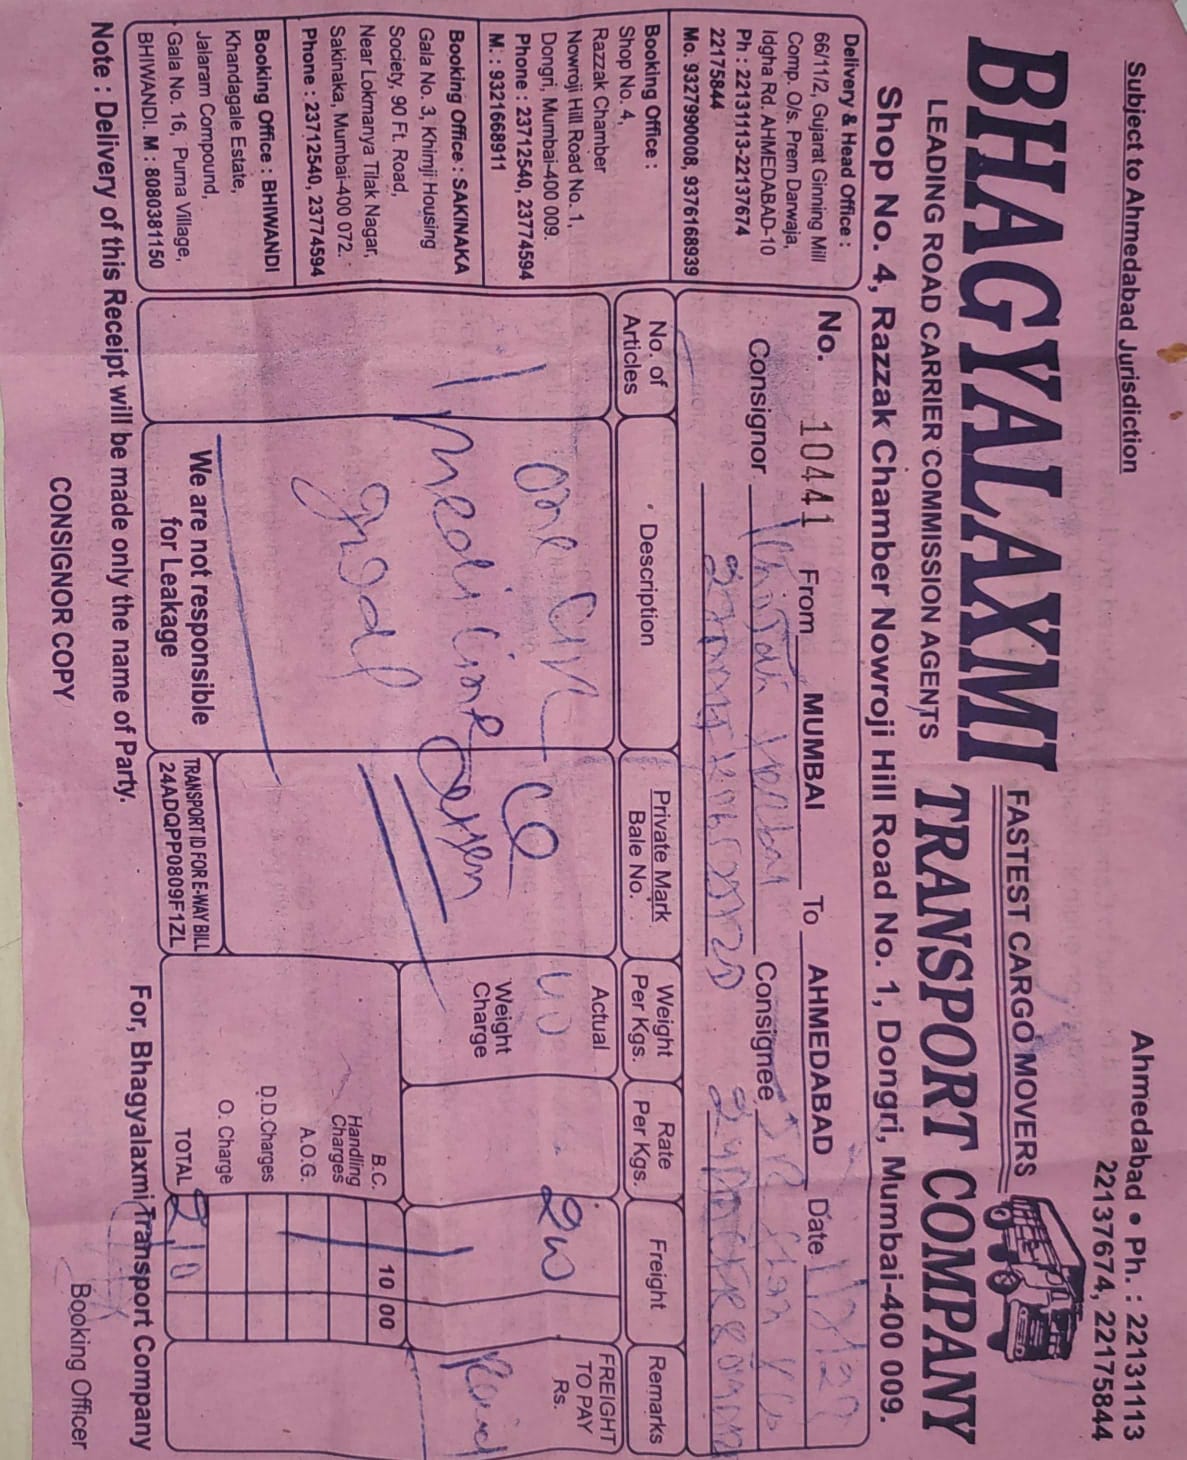 Subject to Ahmedabad Jurisdiction
Ahmedabad • Ph. : 22131113
22137674, 22175844
BHAGYALAXMI
FASTEST CARGO MOVERS
TRANSPORT COMPANY
LEADING ROAD CARRIER COMMISSION AGENTS
Shop No. 4, Razzak Chamber Nowroji Hill Road No. 1, Dongri, Mumbai-400 009.
Delivery & Head Office :
66/11/2, Gujarat Ginning Mill
Comp. O/s. Prem Darwaja,
Idgha Rd. AHMEDABAD-10
Ph : 22131113-22137674
22175844
Mo. 9327990008, 9376168939
Booking Office :
Shop No. 4,
Razzak Chamber
Nowroji Hill Road No. 1,
Dongri, Mumbai-400 009.
Phone : 23712540, 23774594
M. : 9321668911
Booking Office : SAKINAKA
Gala No. 3, Khimji Housing
Society, 90 Ft. Road,
Near Lokmanya Tilak Nagar,
Sakinaka, Mumbai-400 072.
Phone : 23712540, 23774594
Booking Office : BHIWANDI
Khandagale Estate,
Jalaram Compound,
Gala No. 16, Purna Village,
BHIWANDI. M : 8080381150
No. 10441 From MUMBAI To AHMEDABAD Date
Consignor Consignee
No. of Articles
Description
Private Mark Bale No.
Weight Per Kgs.
Rate Per Kgs.
Freight
Remarks
1
one
medicine
Actual
Weight Charge
200
FREIGHT TO PAY Rs.
Paid
B.C. 10 00
Handling Charges
A.O.G.
D.D.Charges
O. Charge
TOTAL 210
We are not responsible
for Leakage
TRANSPORT ID FOR E-WAY BILL
24ADQPP0809F1ZL
Note : Delivery of this Receipt will be made only the name of Party.
For, Bhagyalaxmi Transport Company
CONSIGNOR COPY
Booking Officer